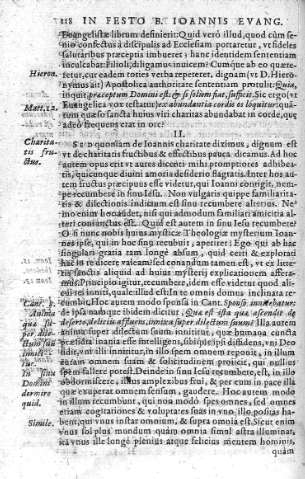 118 IN FESTO B. IOANNIS EVANG.
Euangelistæ librum definierit: Quid verò illud, quod cùm se-
nio confectus à discipulis ad Ecclesiam portaretur, vt fideles
salutaribus præceptis imbueret: hanc identidem sententiam
inculcabat: Filioli, diligamus inuicem? Cumque ab eo quære-
Hieron. retur, cur eadem toties verba repeteret, dignam (vt D. Hiero-
nymus ait) Apostolica authoritate sententiam protulit: Quia,
inquit, præceptum Domini est, & si solum fiat, sufficit. Sic ergo (vt
Matt. 12. Euangelica vox testatur) ex abundantia cordis os loquitur: quan-
tum quæso sancta huius viri charitas abundabat in corde, quę
adeò frequens erat in ore?
II.
Charita-
tis fru-
ctus.
SED quoniam de Ioannis charitate diximus, dignum est
vt de charitatis fructibus & effectibus pauca dicamus. Ad hoc
autem opus erit vt aures dicenti mihi promptiores adhibea-
tis, quicunque diuini amoris desiderio flagratis. Inter hos au-
tem fructus præcipuus esse videtur, qui Ioanni contigit, nem-
pe recumbere in sinu Iesu. Non vulgaris quippe familiarita-
tis & dilectionis indicium est sinu recumbere alterius. Ne-
mo enim hoc audet, nisi qui admodum familiari amicitia al-
teri coniunctus est. Quid est autem in sinu Iesu recumbere?
O si nunc nobis huius mysticæ Theologiæ mysterium Ioan-
nes ipse, qui in hoc sinu recubuit, aperiret! Ego qui ab hac
singulari gratia tam longè absum, quid certi & explorati
hac in re dicere valeam? sed conandum tamen est, vt ex lite-
ris sanctis aliquid ad huius mysterij explicationem affera-
mus. Principio igitur, recumbere, idem esse videtur quod ali-
cui rei inniti, quale illud est
recumbit. Hoc autem modo sponsa in Cant. Sponso innitebatur:
Cant. 8. de ipsa namque ibidem dicitur, Quæ est ista quæ ascendit de
deserto, delicijs affluens, innixa super dilectum suum? Illa autem
anima super dilectum suum innititur, quæ humana cuncta
præsidia inania esse intelligens, sibique ipsi diffidens, vni Deo
fidens, vni illi innititur, in illo spem omnem reponit, in illum
curam omnem suam & sollicitudinem proijcit, qui nullius
spem fallere potest. Deinde in sinu Iesu recumbere, est, in illo
obdormiscere, illius amplexibus frui, & per eum in pace illa
quæ exuperat omnem sensum, gaudere. Hoc autem modo
in illum recumbunt, qui non modò spes omnes, sed omnes
etiam cogitationes & voluptates suas in vno illo positas ha-
bent, qui vnus instar omnium, & supra omnia est. Sicut enim
Simile. vnus sol plus mundum quàm omnia simul astra illuminat,
ita vnus ille longè pleniùs atque felicius mentem hominis,
quàm